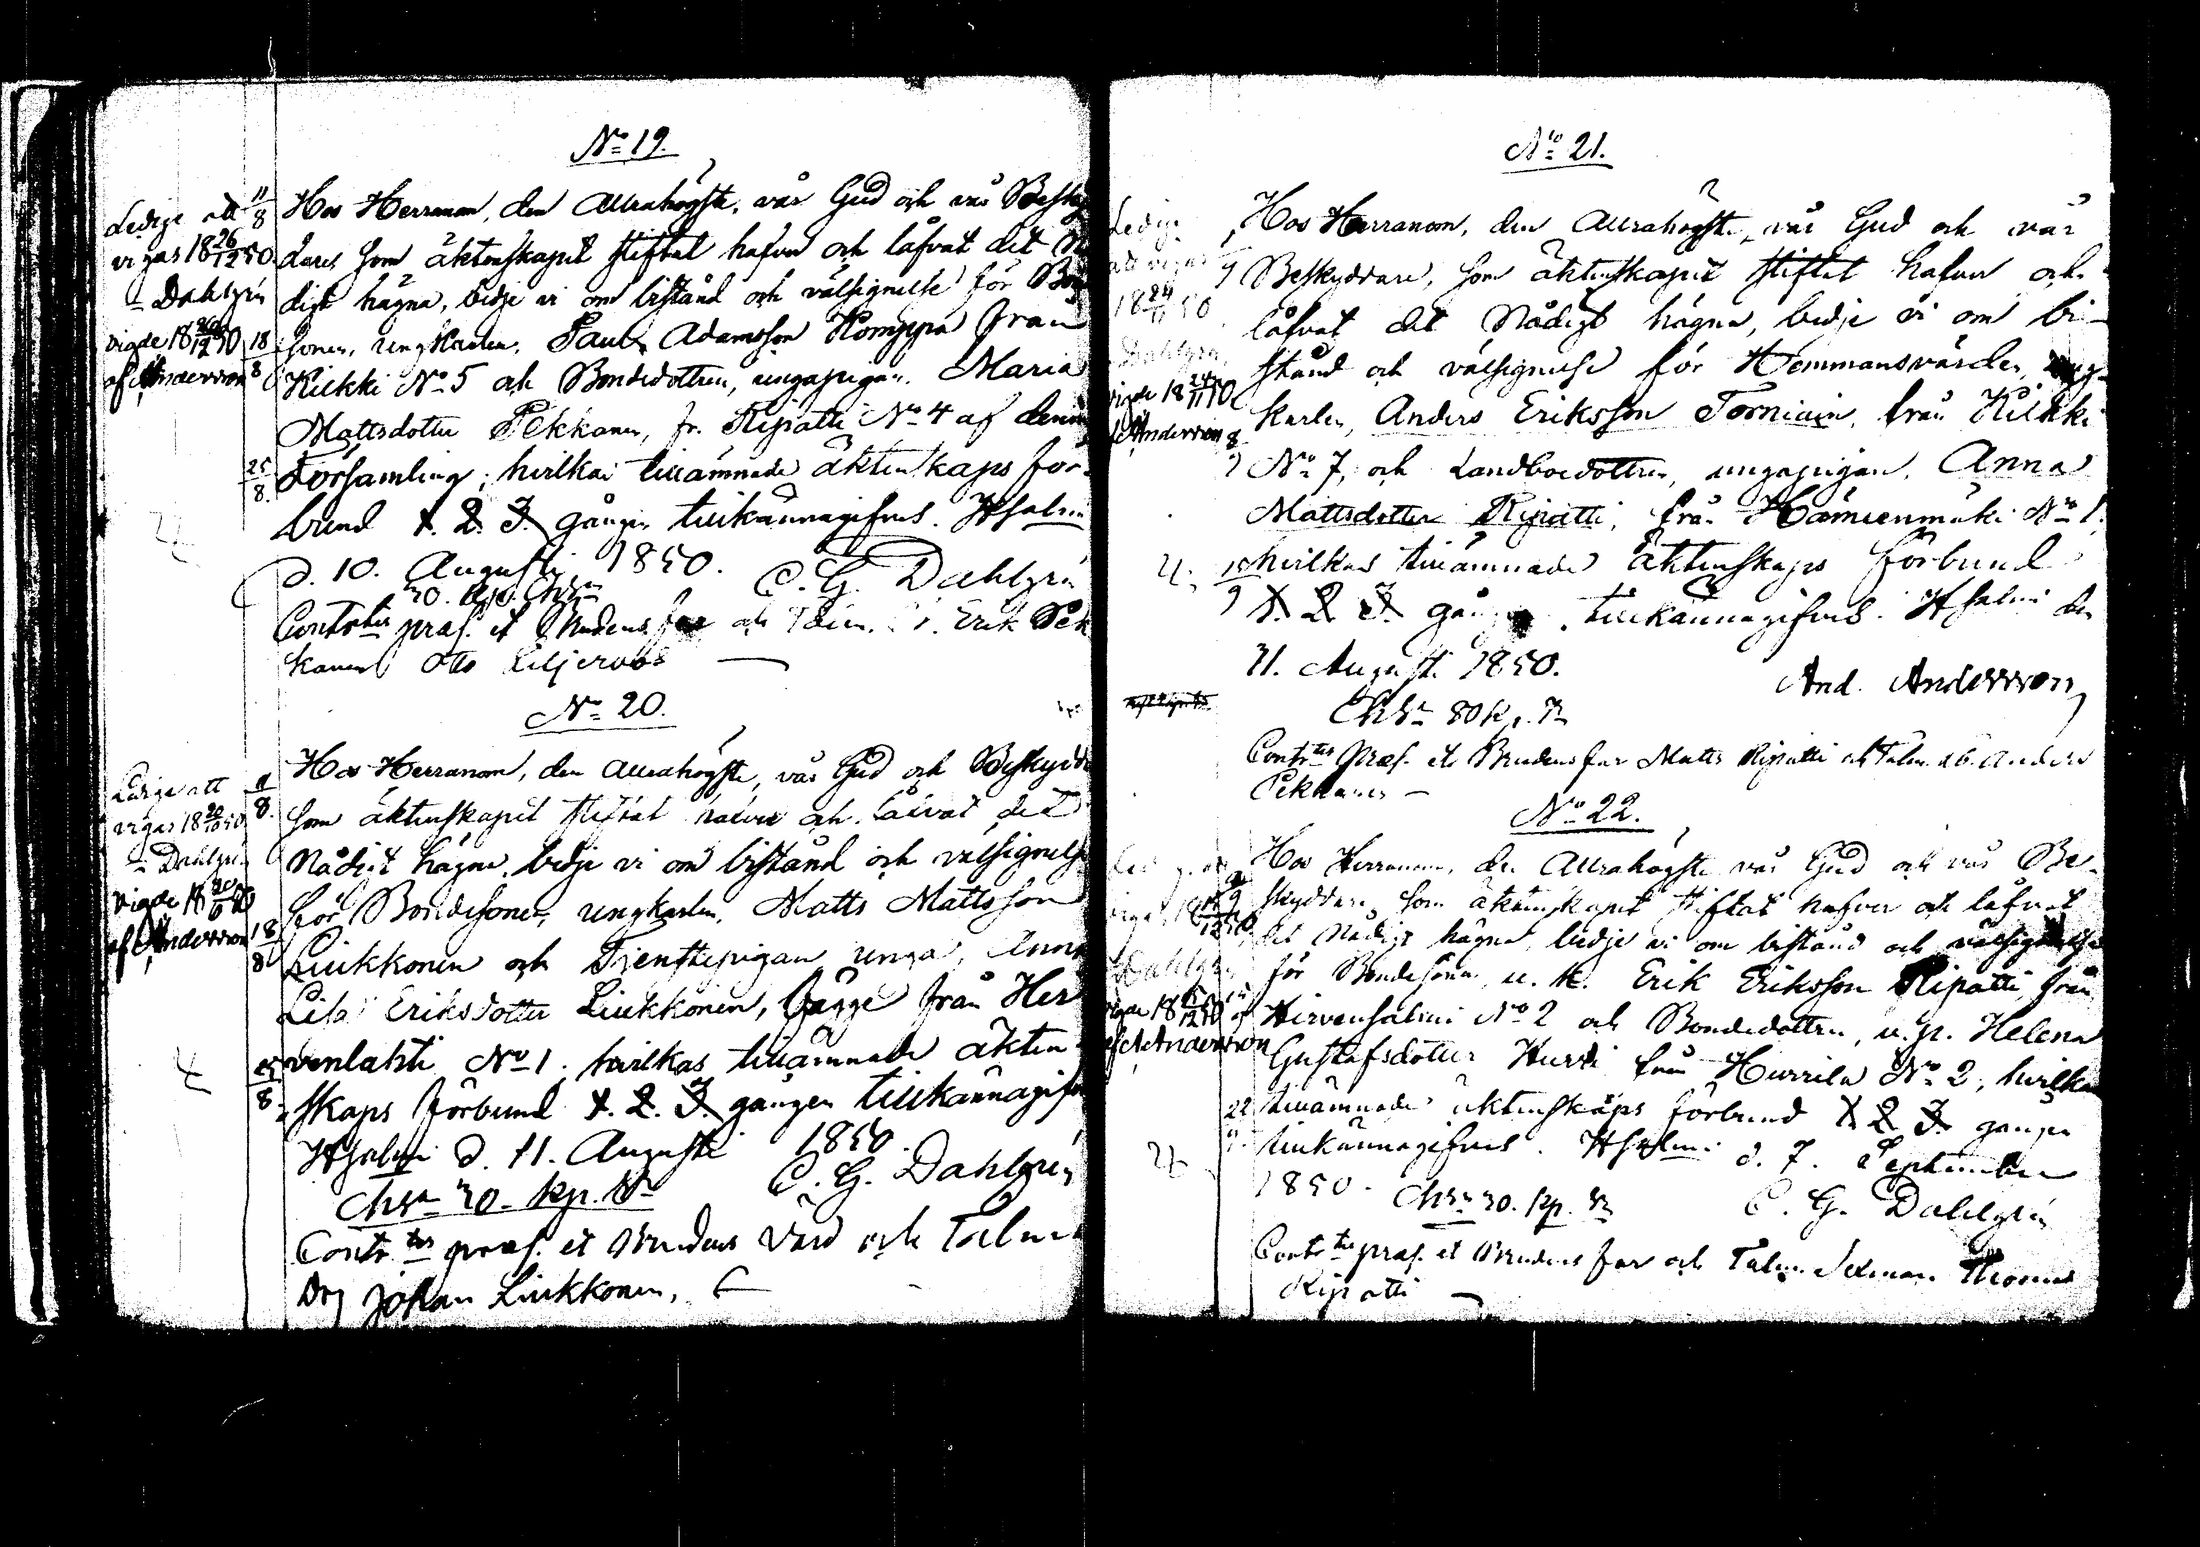 No 19.
Ledige att
vigas 18 26/12 50
Dahlgrén
vigde 18 26/12 50
af Anderson
11/8
18/8
25/8
Hos Herranom, den Allrahögste, vår Gud och vår Besky
dare som äktenskapet stiftat hafver och låfvat det
digt hägna, bedje vi om bistånd och välsignelse för Bon
sonen, ungkarlen, Paul Adamsson Komppa från
Kiekki No 5 och Bondedottren, ungapigan Maria
Mattsdotter Pekkanen, fr. Ripatti No 4 af denna
Församling; hvilkas tillämnade äktenskaps för-
bund 1. 2. 3. gången tillkännagifves. Hsalmi
d. 10. Augusti 1850. C. G. Dahlgrén
30. kp. Chsn
Contrtes præs. et Brudens far och Erik Pek
kanen Otto Liljeroos
No 20.
Ledige att
vigas 18 20/10 50
Dahlgrén
vigde 18 20/10 50
af Anderson
11/8.
18/8
25/8
Hos Herranom, den Allrahögste, vår Gud och Beskydd
som äktenskapet stiftat hafver och låfvat det
Nådigt hägna, bedje vi om bistånd och välsignelse
för Bondesonen, ungkarlen, Matts Mattsson
Liukkonen och Tjenstepigan unga, Anna
Lisa Eriksdotter Liukkonen, bägge från Hir
venlahti No 1. hvilkas tillämnade äkten
skaps förbund 1. 2. 3. gången tillkännagifv
Hsalmi d. 11. Augusti 1850.
Chsn 30. kp. Sr C. G. Dahlgrén
Contr.tes præs. et Brudens Vård och Talm
Drg Johan Liukkonen,
No 21.
Ledige
att vigas
18 24/11 50
Dahlgrén
vigde 18 24/11 50
Anderson
Hos Herranom, den Allrahögste, vår Gud och vår
Beskyddare, som äktenskapet stiftat hafver och
låfvat det Nådigt hägna, bedje vi om bi-
stånd och välsignelse för Hemmansvärden, ung-
karlen, Anders Eriksson Torniain, från Kiekki
No 7, och Landboedottren, ungapigan, Anna
Mattsdotter Ripatti, från Hämeenmäki No 1,
hvilkas tillämnade Äktenskaps förbund
1. 2. 3. gången tillkännagifves. Hsalmi den
31. Augusti 1850.
And. Anderson
Chsn 80 kp. Sr
Contrtes præs. et Brudens far Matts Ripatti och Talm. Anders
Pekkanen
No 22.
Dahlgrén
af Anderson
22/9
Hos Herranom, den Allrahögste vår Gud och vår Be-
skyddare, som äktenskapet stiftat hafver och låfvat
det Nådigt hägna, bedje vi om bistånd och välsignelse
för Bondesonen u. k. Erik Eriksson Ripatti, från
Hirvensalmi No 2 och Bondedottren, u. p. Helena
Gustafsdotter Hurri från Hurrila No 2, hvilkas
tillämnade äktenskaps förbund 1. 2. 3. gången
tillkännagifves. Hsalmi d. 7. September
1850. Chsn 30. kp. Sr C. G. Dahlgrén
Contrtes præs. et Brudens far och Talm. Sexman Thomas
Ripatti